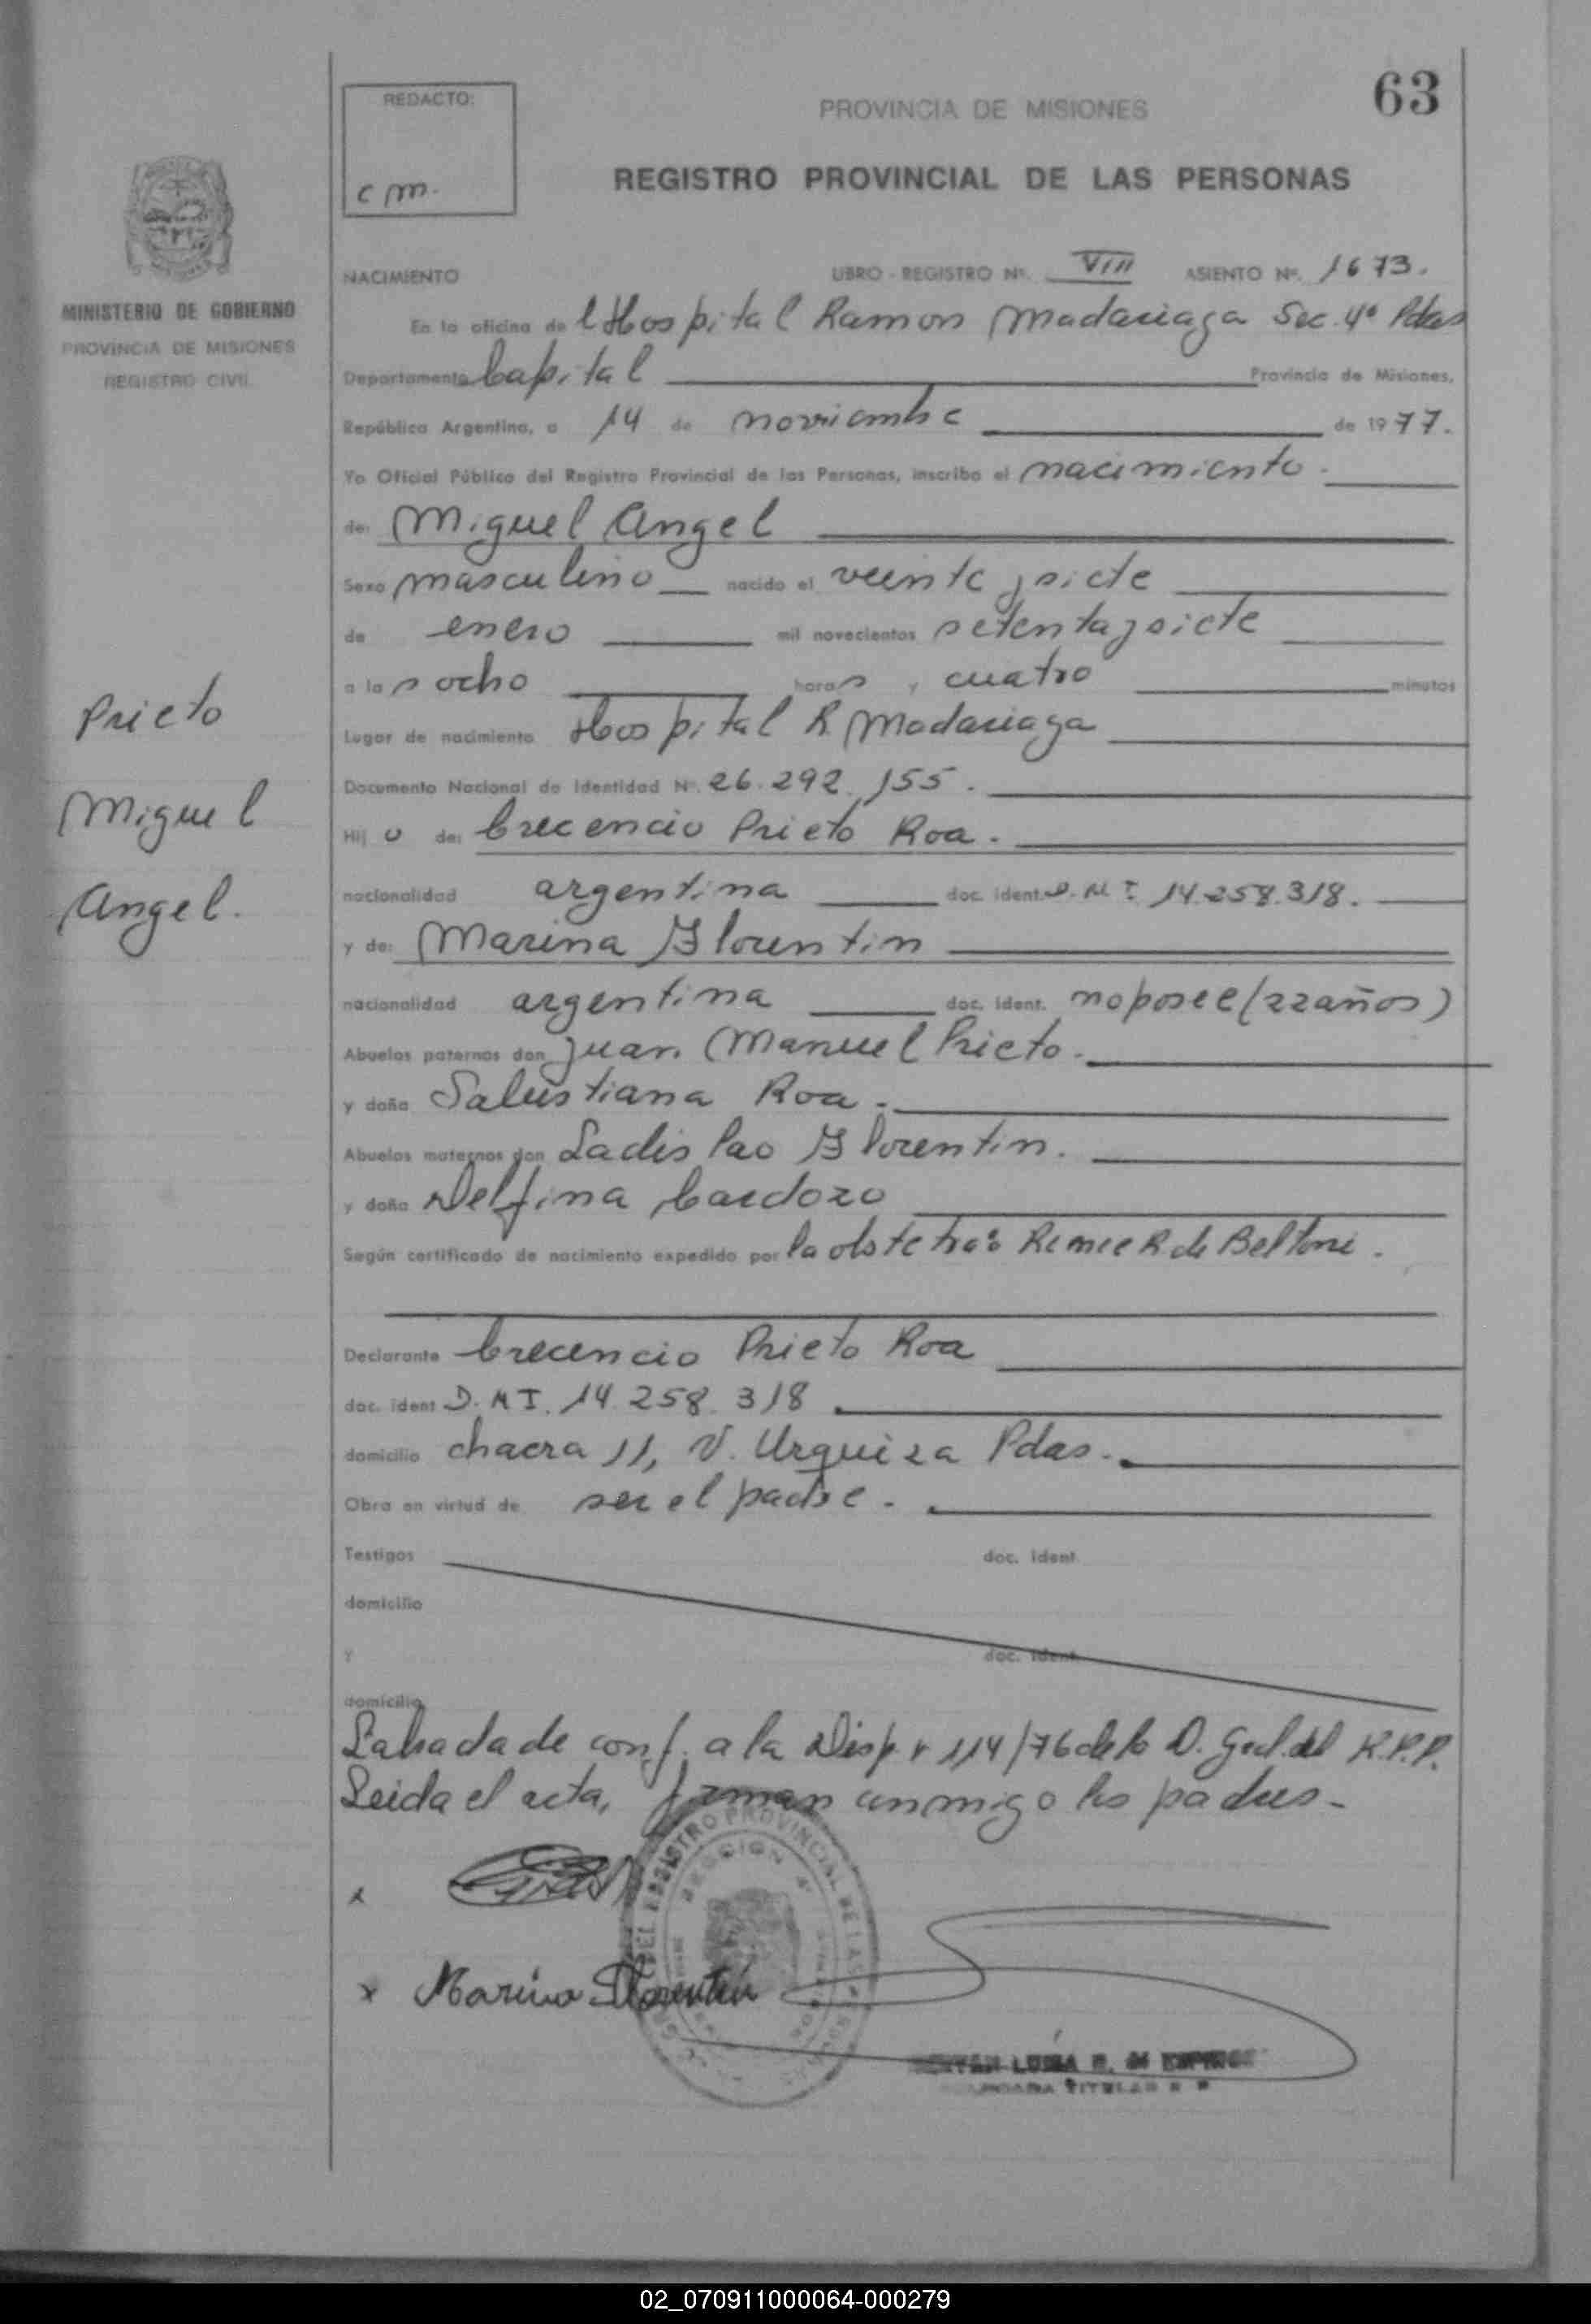 63
REDACTO:
c m.
PROVINCIA DE MISIONES
REGISTRO PROVINCIAL DE LAS PERSONAS
MINISTERIO DE GOBIERNO
PROVINCIA DE MISIONES
REGISTRO CIVIL
NACIMIENTO LIBRO - REGISTRO Nº. VIII ASIENTO Nº. 1673.
En la oficina de l Hospital Ramon Madariaga Sec. 4º Pdas
Departamento Capital Provincia de Misiones,
República Argentina, a 14 de noviembre de 1977.
Yo Oficial Público del Registro Provincial de las Personas, inscribo el nacimiento.
de: Miguel Angel
Sexo masculino nacido el veinte y siete
de enero mil novecientos setenta y siete
a la s ocho horas y cuatro minutos
Lugar de nacimiento Hospital R. Madariaga
Documento Nacional de Identidad Nº. 26.292.155.
Hij o de: Crecencio Prieto Roa.
nacionalidad argentina doc. ident. D.N.I. 14.258.318.
y de: Marina Florentin
nacionalidad argentina doc. ident. no posee (22 años)
Abuelos paternos don Juan Manuel Prieto.
y doña Salustiana Roa.
Abuelos maternos don Ladislao Florentin.
y doña Delfina Cardozo
Según certificado de nacimiento expedido por la obstetra: R. de
Declarante Crecencio Prieto Roa
doc. ident D.N.I. 14.258.318
domicilio chacra 11, V. Urquiza Pdas.
Obra en virtud de ser el padre.
Testigos doc. ident.
domicilio
y doc. ident.
domicilio
Labrada de conf. a la Disp. 114/76 de la D. Gral. del R.P.P.
Leida el acta, firman conmigo los padres.
x
x Marina Florentín
Prieto
Miguel
Angel.
REGISTRO PROVINCIAL DE LAS
SECCION 4ª
LUISA
TITULAR
02_070911000064-000279